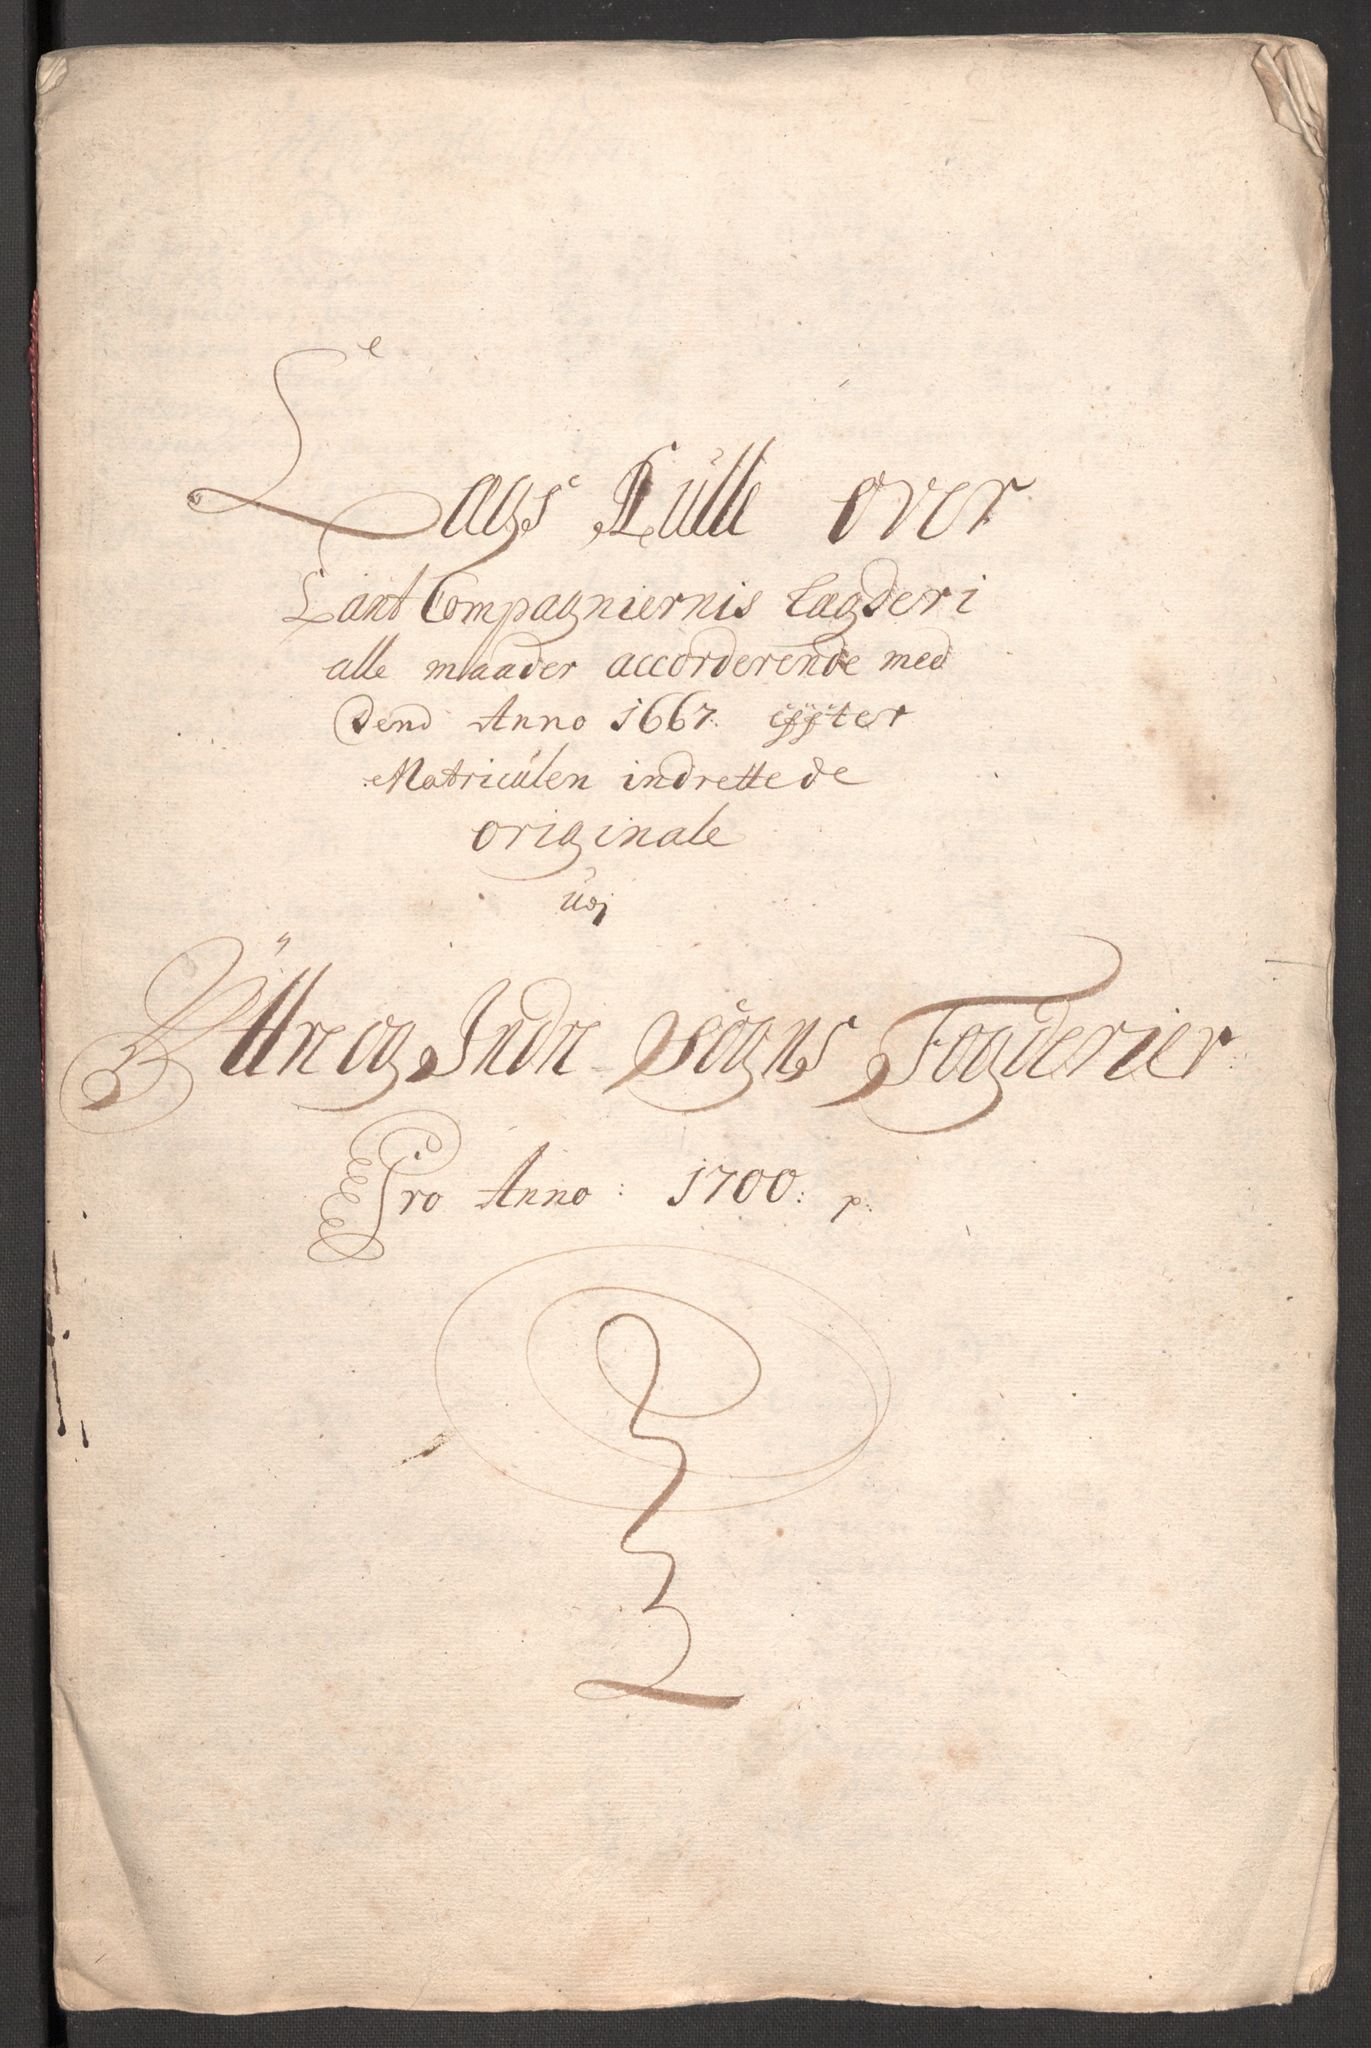 Lægs Rulle over
Lant Compagniernis Lægder i
alle maader accorderende med
dend Anno 1667. effter
Matriculen indrettede
originale
Udj
Yttre og Indre Sogns Fogderier
Pro Anno: 1700: p: